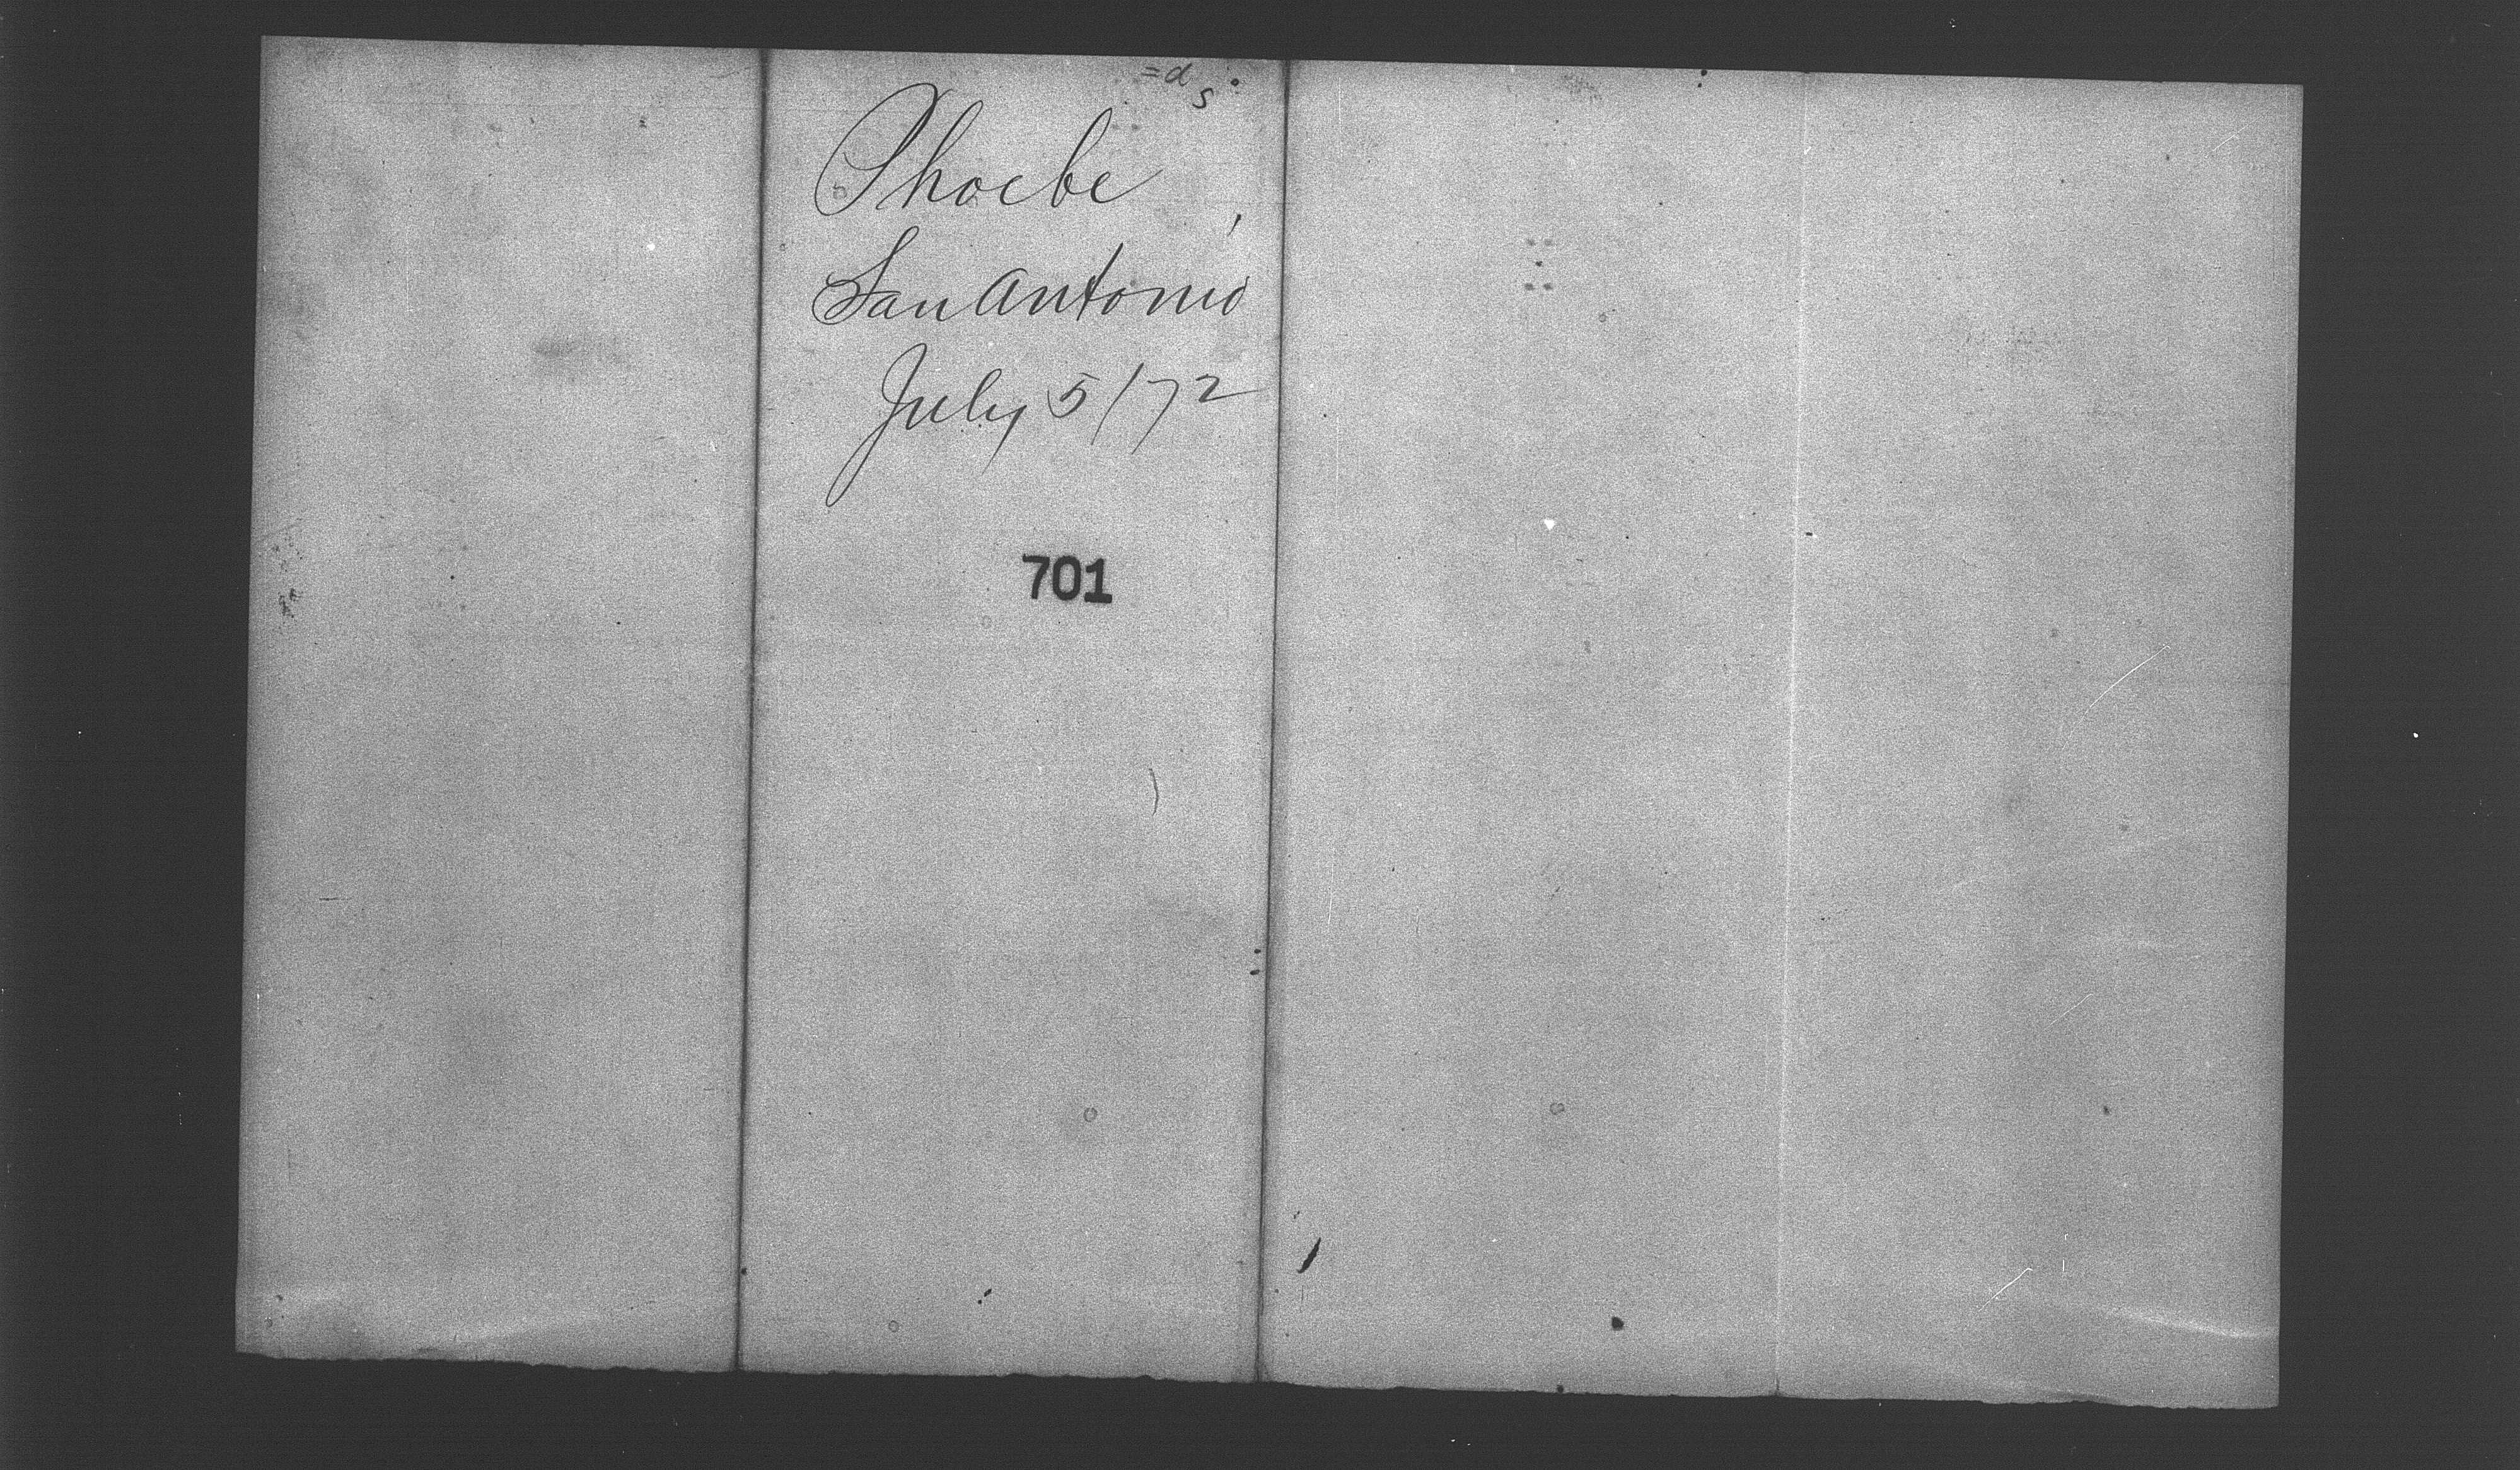 Phoebe,
San Antonio
July 5/72
701